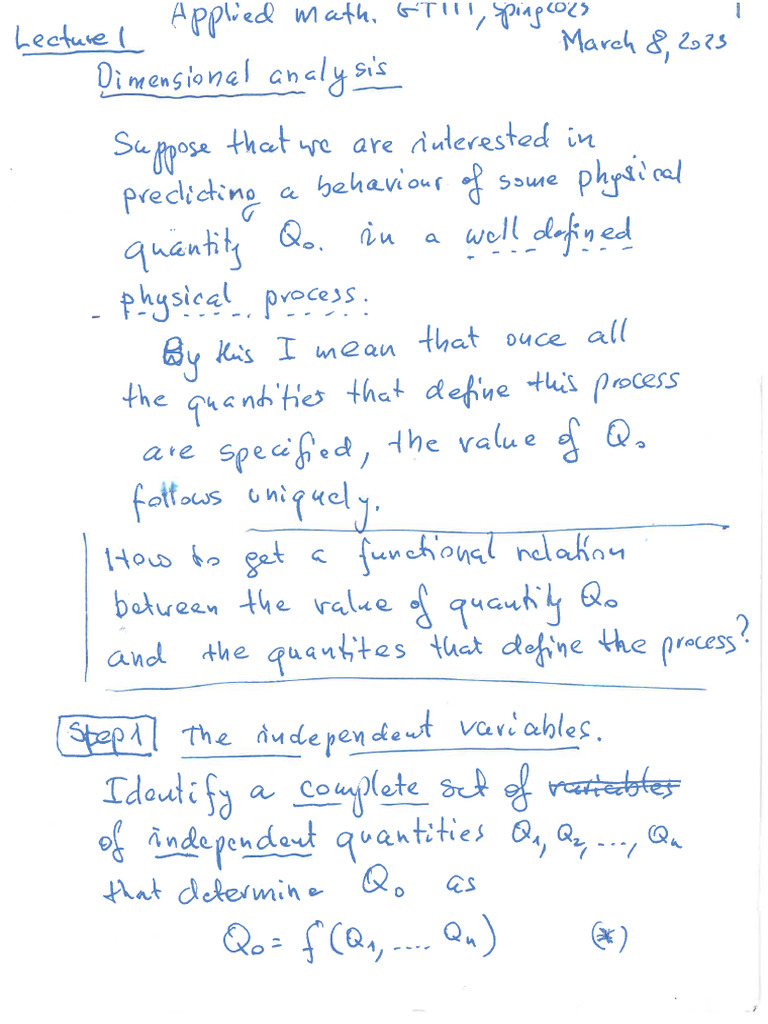 Applied math. GT111, Sping2023 1
Lecture 1 March 8, 2023
Dimensional analysis
Suppose that we are interested in
predicting a behaviour of some physical
quantity Q₀. in a well defined
physical process.
By this I mean that once all
the quantities that define this process
are specified, the value of Q₀
follows uniquely.
How to get a functional relation
between the value of quantity Q₀
and the quantites that define the process?
Step 1 The independent variables.
Identify a complete set of variables
of independent quantities Q₁, Q₂, ..., Qₙ
that determine Q₀ as
Q₀ = f(Q₁, .... Qₙ) (*)